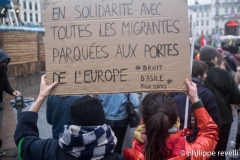 EN SOLIDARITÉ AVEC
TOUTES LES MIGRANTES
PARQUÉES AUX PORTES
DE L'EUROPE. * DROIT
D'ASILE *
POUR TOUTES
© philippe revelli